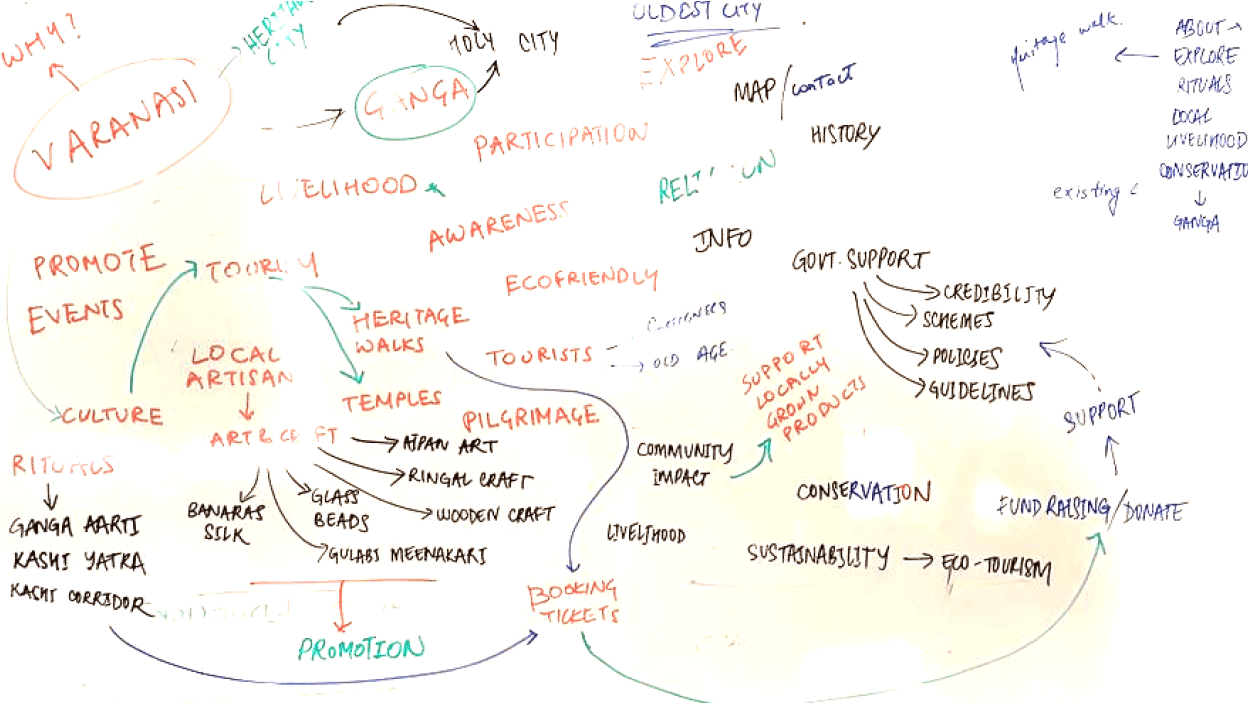 WHY?
VARANASI
CITY
HOLY CITY
GANGA
OLDEST CITY
EXPLORE
MAP/contact
HISTORY
PARTICIPATION
LIVELIHOOD
AWARENESS
INFO
ECOFRIENDLY
walk.
ABOUT
EXPLORE
RITUALS
LOCAL
LIVELIHOOD
CONSERVATIO
existing
GANGA
PROMOTE
EVENTS
CULTURE
HERITAGE
WALKS
TEMPLES
TOURISTS
OLD AGE
PILGRIMAGE
LOCAL
ARTISAN
AIPAN ART
RINGAL CRAFT
WOODEN CRAFT
GLASS
BEADS
BANARAS
SILK
GULABI MEENAKARI
PROMOTION
RITUALS
GANGA AARTI
KASHI YATRA
KASHI CORRIDOR
BOOKING
TICKETS
GOVT. SUPPORT
CREDIBILITY
SCHEMES
POLICIES
GUIDELINES
SUPPORT
LOCALLY
GROWN
PRODUCTS
COMMUNITY
IMPACT
LIVELIHOOD
CONSERVATION
SUSTAINABILITY
ECO-TOURISM
SUPPORT
FUND RAISING/DONATE